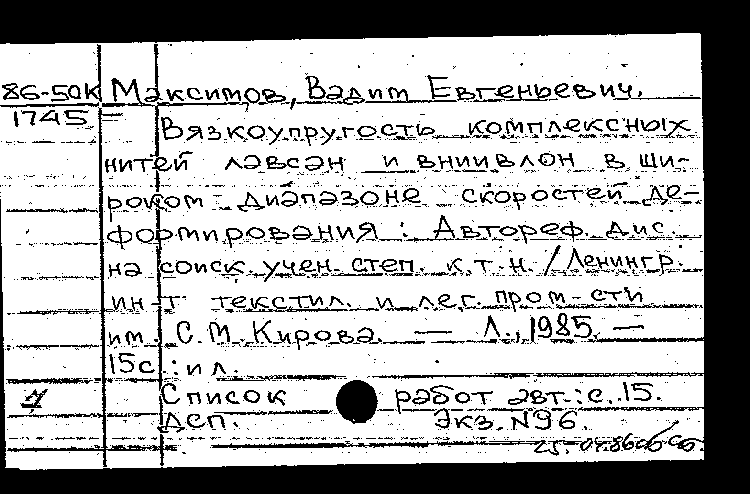 86-50К Максимов, Вадим Евгеньевич.
1745
Вязкоупругость комплексных
нитей лавсан и вниивлон в ши-
роком диапазоне скоростей де-
формирования : Автореф. дис.
на соиск. учен. степ. к.т.н. / Ленингр.
ин-т текстил. и лег. пром-сти
им. С.М. Кирова. — Л., 1985. —
15с.: ил.
Список работ авт.: с. 15.
Дсп. Экз. N96.